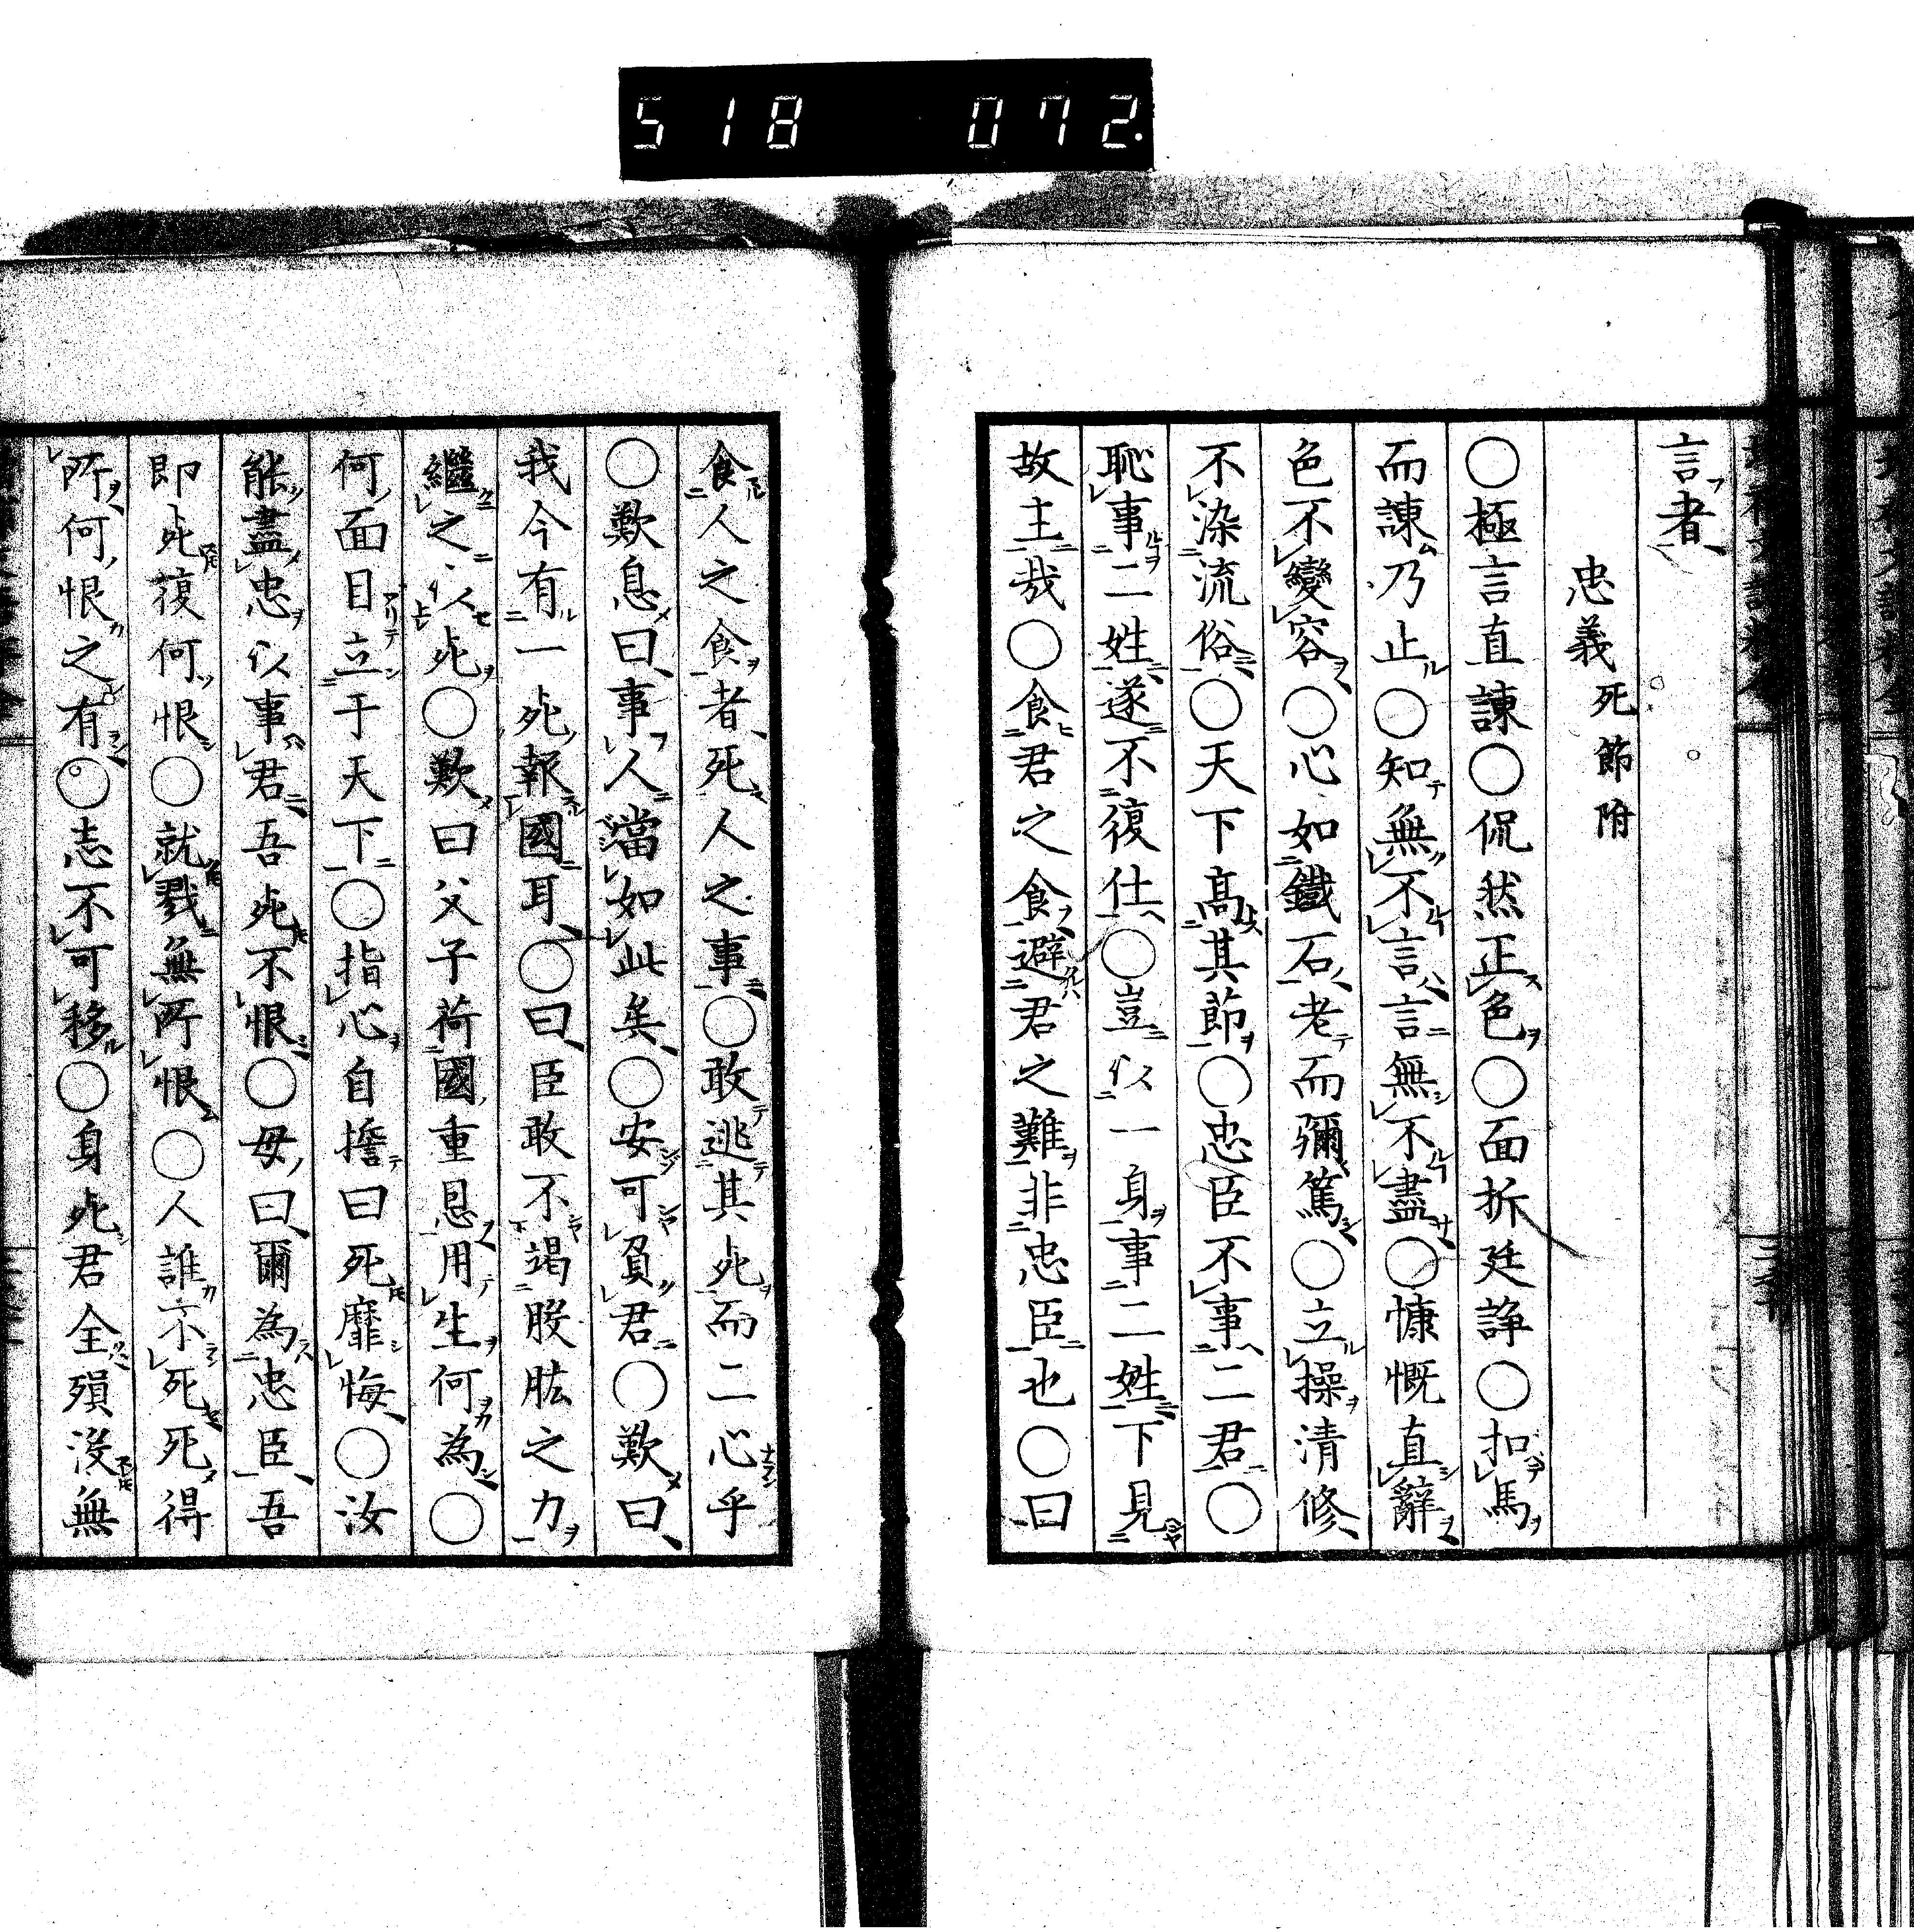 518 072.
言者
忠義 死節附
○極言直諌○侃然正色○面折廷諍○扣馬
而諌乃止○知無不言言無不盡○慷慨直辭
色不變容○心如鐵石老而彌篤○立操清修
不染流俗○天下高其節○忠臣不事二君○
恥事二姓遂不復仕○豈以一身事二姓下見
故主哉○食君之食避君之難非忠臣也○曰
食人之食者死人之事○敢逃其死而二心乎
○歎息曰事人當如此矣○安可負君○歎曰
我今有一死報國耳○曰臣敢不竭股肱之力
繼之以死○歎曰父子荷國重恩用生何為○
何面目立于天下○指心自擔曰死靡悔○汝
能盡忠以事君吾死不恨○母曰爾為忠臣吾
即死復何恨○就戮無所恨○人誰不死死得
所何恨之有○志不可移○身死君全殞沒無